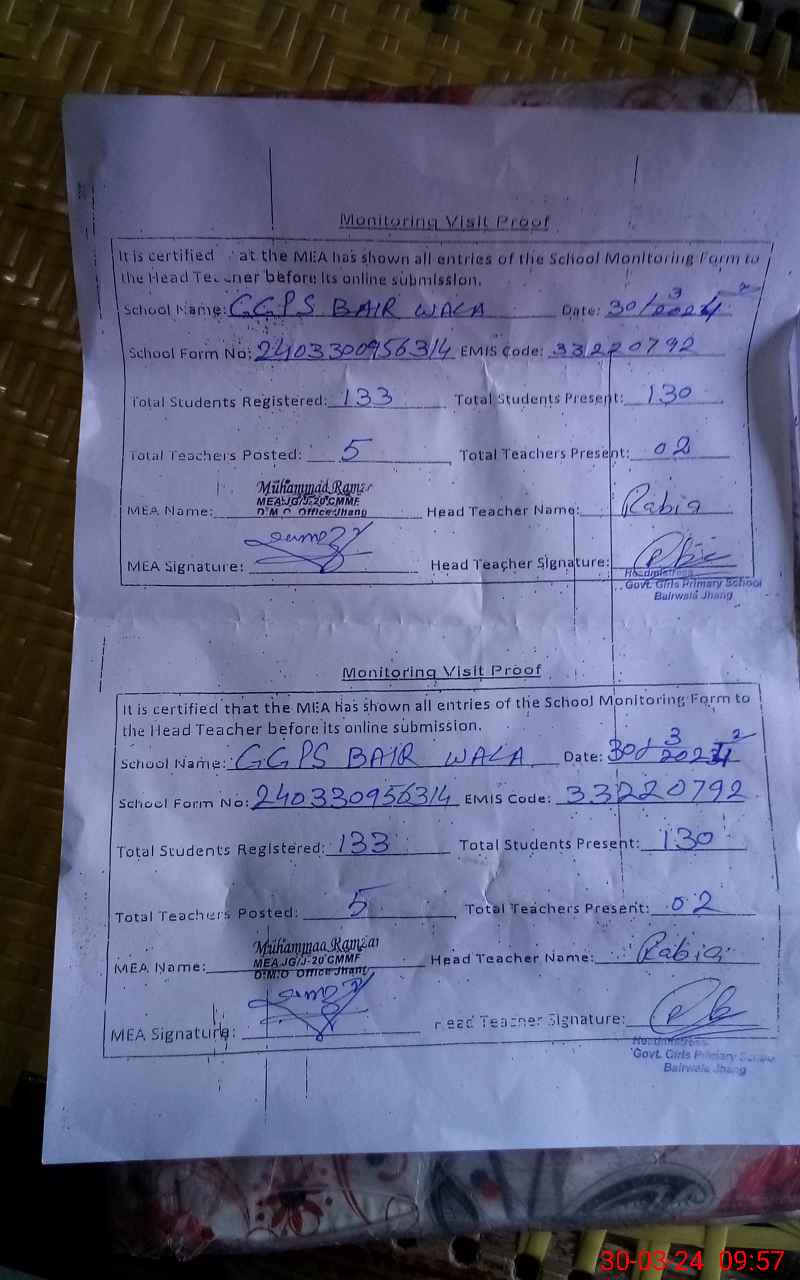 Monitoring Visit Proof
It is certified at the MEA has shown all entries of the School Monitoring Form to
the Head Teacher before its online submission.
School Name: GGPS BAIR WALA Date: 30/3/2024
School Form No: 2403300956314 EMIS Code: 33220792
Total Students Registered: 133 Total Students Present: 130
Total Teachers Posted: 5 Total Teachers Present: 02
MEA Name: Muhammad Ramz
MEA JG/J-20 CMMF
D.M.O Office Jhang
Head Teacher Name: Rabia
MEA Signature: Head Teacher Signature:
Headmistress
Govt. Girls Primary School
Bairwala Jhang
Monitoring Visit Proof
It is certified that the MEA has shown all entries of the School Monitoring Form to
the Head Teacher before its online submission.
School Name: GGPS BAIR WALA Date: 30/3/2024
School Form No: 240330956314 EMIS Code: 33220792
Total Students Registered: 133 Total Students Present: 130
Total Teachers Posted: 5 Total Teachers Present: 02
MEA Name: Muhammad Ramzan
MEA JG/J-20 CMMF
D.M.O Office Jhang
Head Teacher Name: Rabia
MEA Signature: Head Teacher Signature:
Headmistress
Govt. Girls Primary School
Bairwala Jhang
30-03-24 09:57